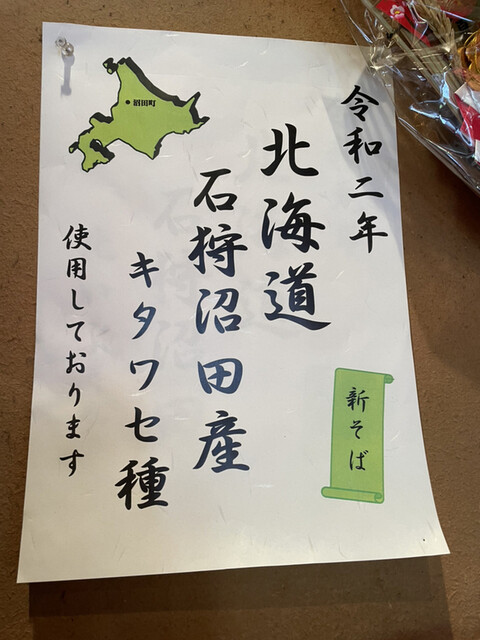 令和二年
新そば
北海道
石狩沼田産
キタワセ種
使用しております
沼田町